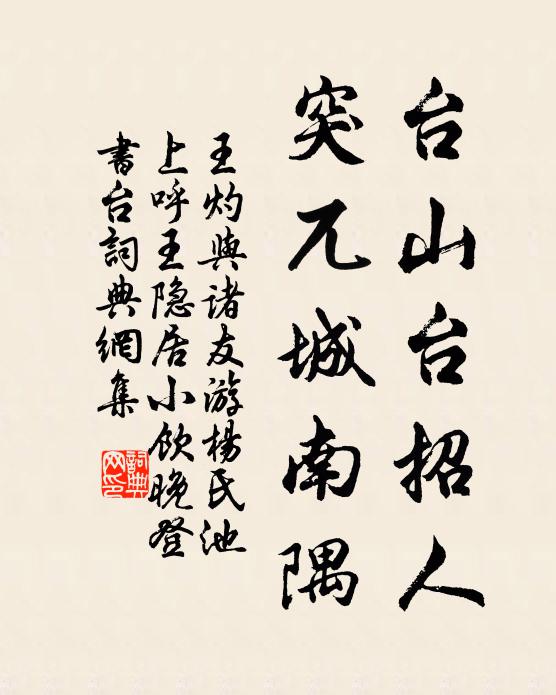 台山台招人
突兀城南隅
王灼與诸友游楊氏池
上呼王隐居小飲晚登
書台詞典網集
詞典网印